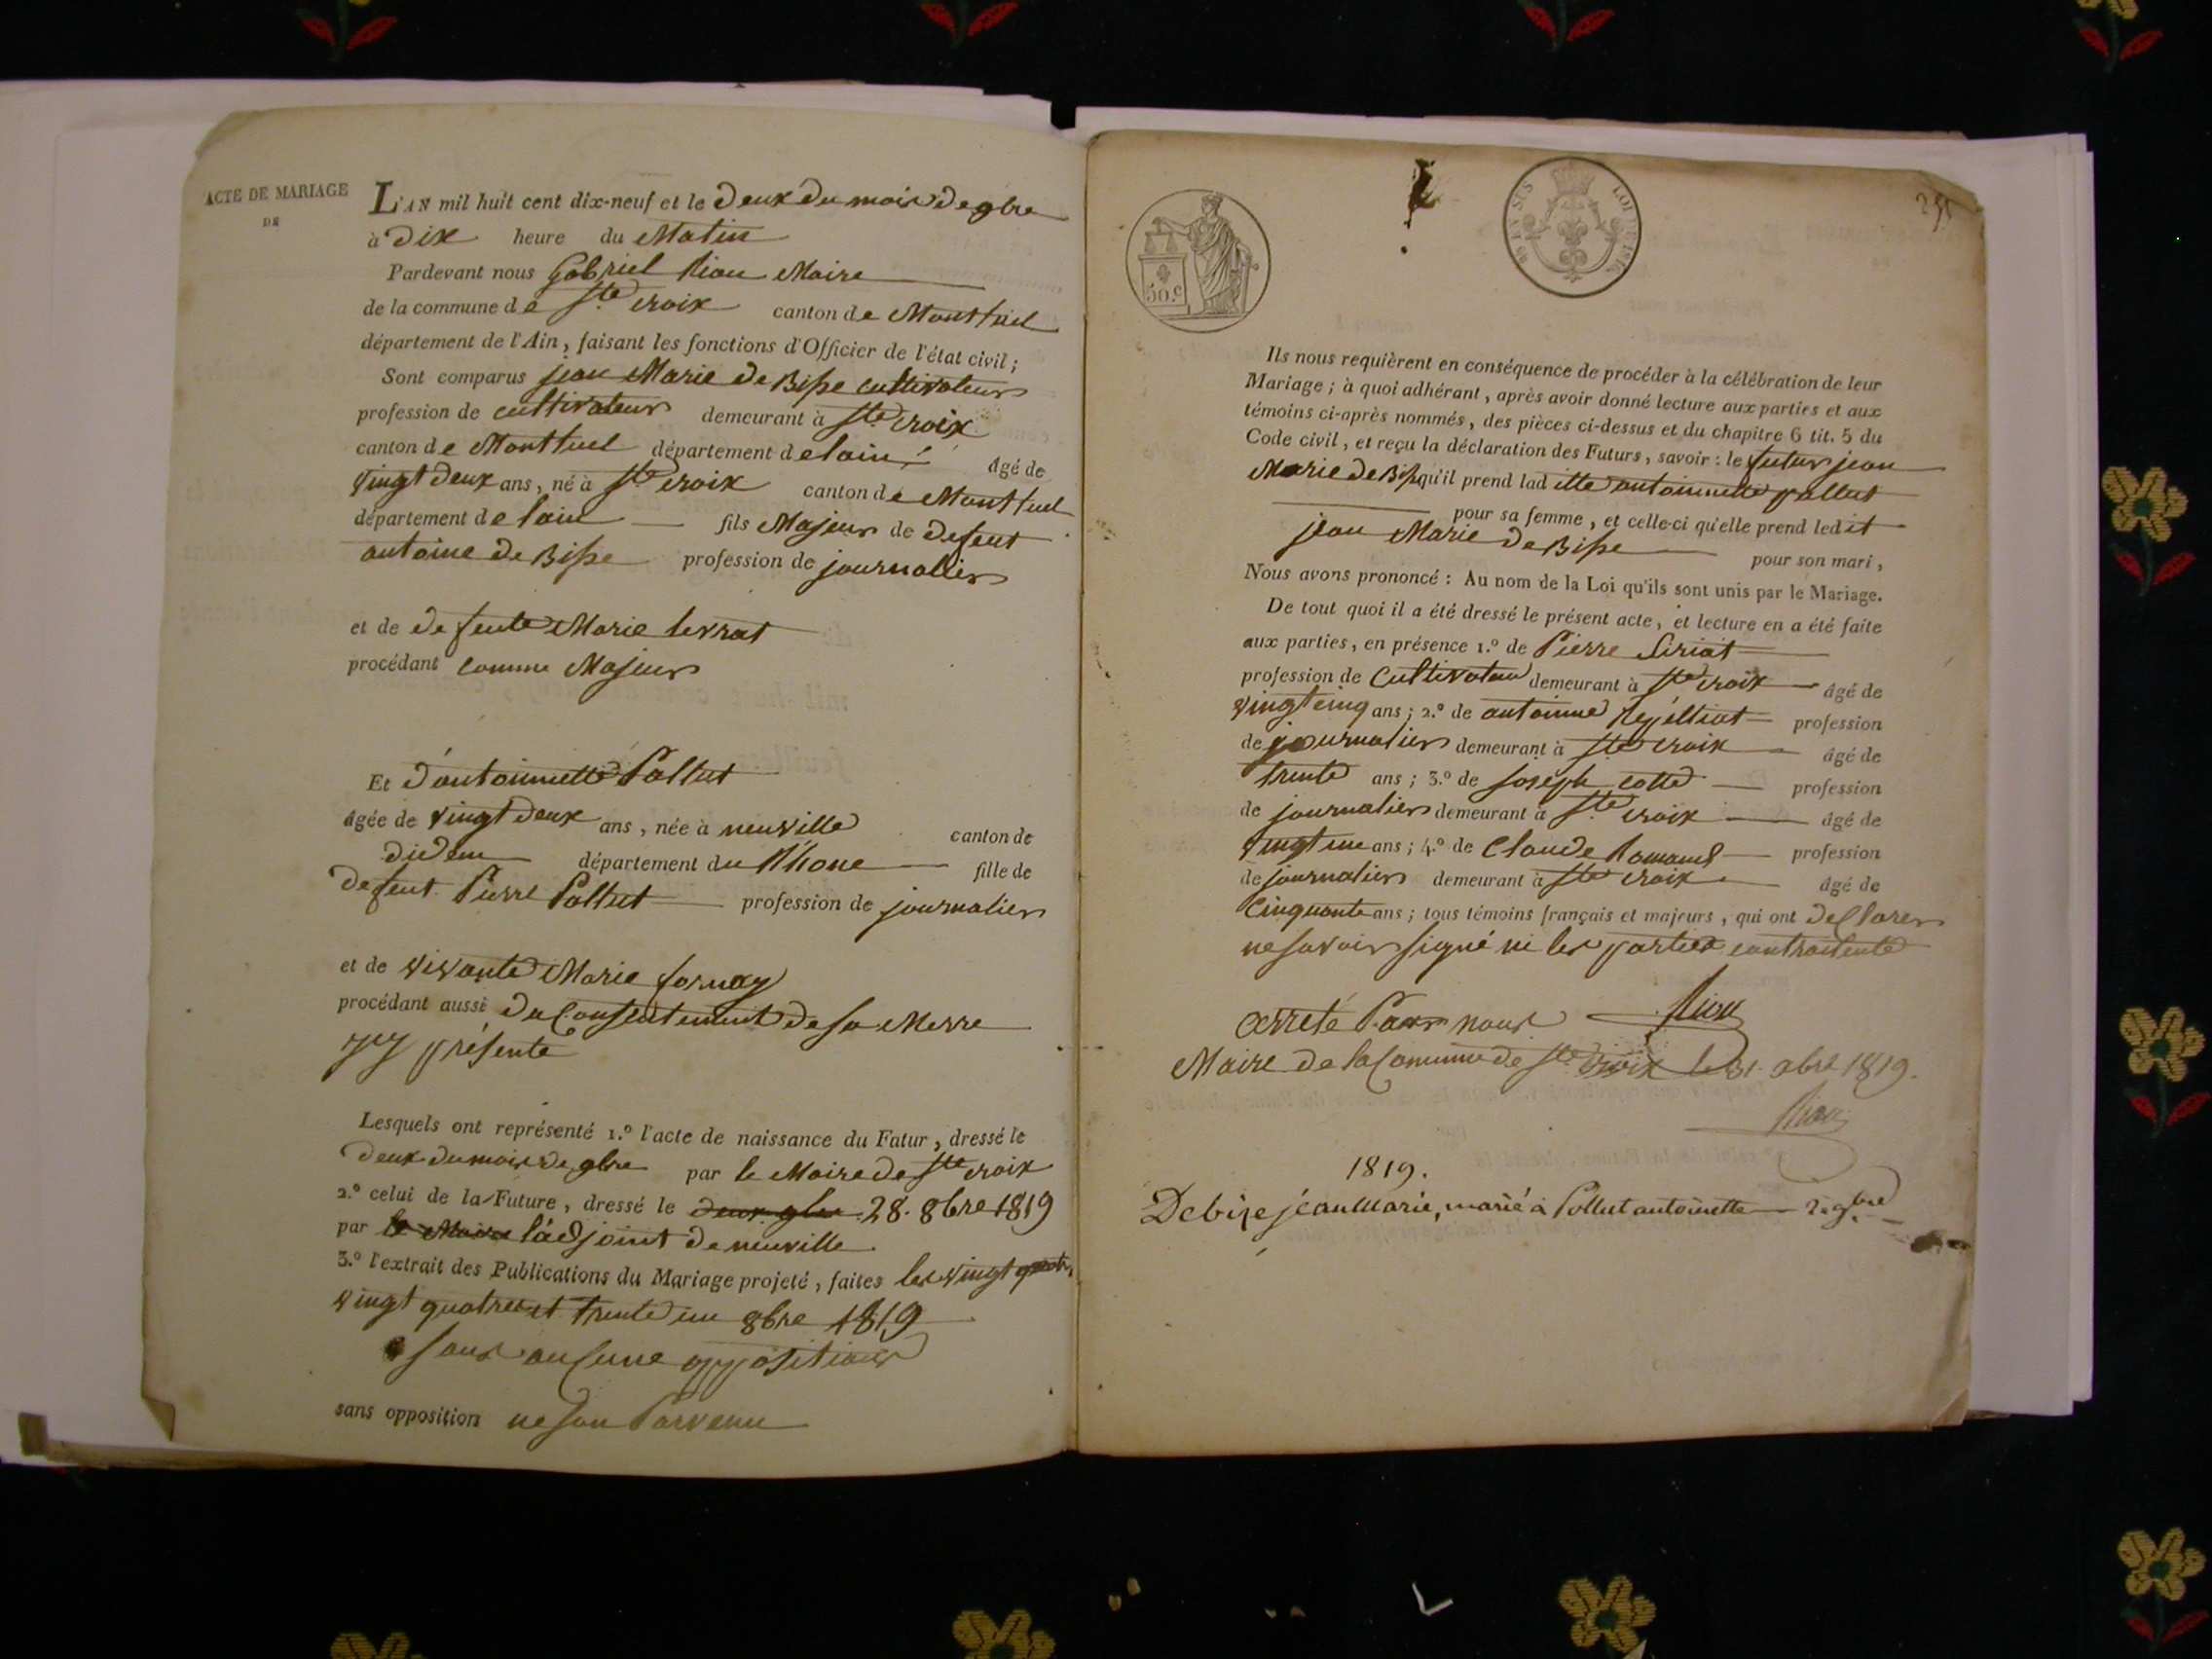 ACTE DE MARIAGE
DE
L'AN mil huit cent dix-neuf et le deux du mois de 9bre
à dix heure du Matin
Pardevant nous Gabriel Riou Maire
de la commune de Ste croix canton de Montluel
département de l'Ain, faisant les fonctions d'Officier de l'état civil;
Sont comparus jean Marie de Bisse cultivateur
profession de cultivateur demeurant à Ste croix
canton de Montluel département de lain âgé de
vingt deux ans, né à Ste croix canton de Montluel
département de lain fils Majeur de defeut
antoine de Bisse profession de journallier
et de defeute Marie levrat
procédant comme Majeur
Et d'antoinnette Pallut
âgée de vingt deux ans, née à neuville canton de
didem département du Rhone fille de
defeut Pierre Pallut profession de journalier
et de vivante Marie fornay
procédant aussi du Consentement de sa Merre
yy présente
Lesquels ont représenté 1.º l'acte de naissance du Futur, dressé le
deux du mois de 9bre par le Maire de Ste croix
2.º celui de la Future, dressé le deux 9bre 28. 8bre 1819
par le Maire l'adjoint de neuville
3.º l'extrait des Publications du Mariage projeté, faites les vingt quatre
vingt quatre et trente un 8bre 1819
sans aucune oppositions
sans opposition ne son Parvenu
50.c
LOI DE 1816
255
Ils nous requièrent en conséquence de procéder à la célébration de leur
Mariage; à quoi adhérant, après avoir donné lecture aux parties et aux
témoins ci-après nommés, des pièces ci-dessus et du chapitre 6 tit. 5 du
Code civil, et reçu la déclaration des Futurs, savoir: le futur jean
Marie de Bisse qu'il prend laditte antoinnette pallut
pour sa femme, et celle-ci qu'elle prend ledit
jean Marie de Bisse pour son mari,
Nous avons prononcé: Au nom de la Loi qu'ils sont unis par le Mariage.
De tout quoi il a été dressé le présent acte, et lecture en a été faite
aux parties, en présence 1.º de Pierre Siriat
profession de Cultivateur demeurant à Ste croix âgé de
vingt cinq ans; 2.º de antoinne profession
de journalier demeurant à Ste croix âgé de
trente ans; 3.º de Joseph cotte profession
de journalier demeurant à Ste croix âgé de
vingt une ans; 4.º de Claude Romand profession
de journalier demeurant à Ste croix âgé de
Cinquante ans; tous témoins français et majeurs, qui ont declarer
ne savoir signé ni les parties contractente
Riou
arreté Par nous
Maire de la Commune de Ste croix le 31. xbre 1819.
Riou
1819.
Debise jéan Marie, marié à Pollut antoinette 2. 9bre